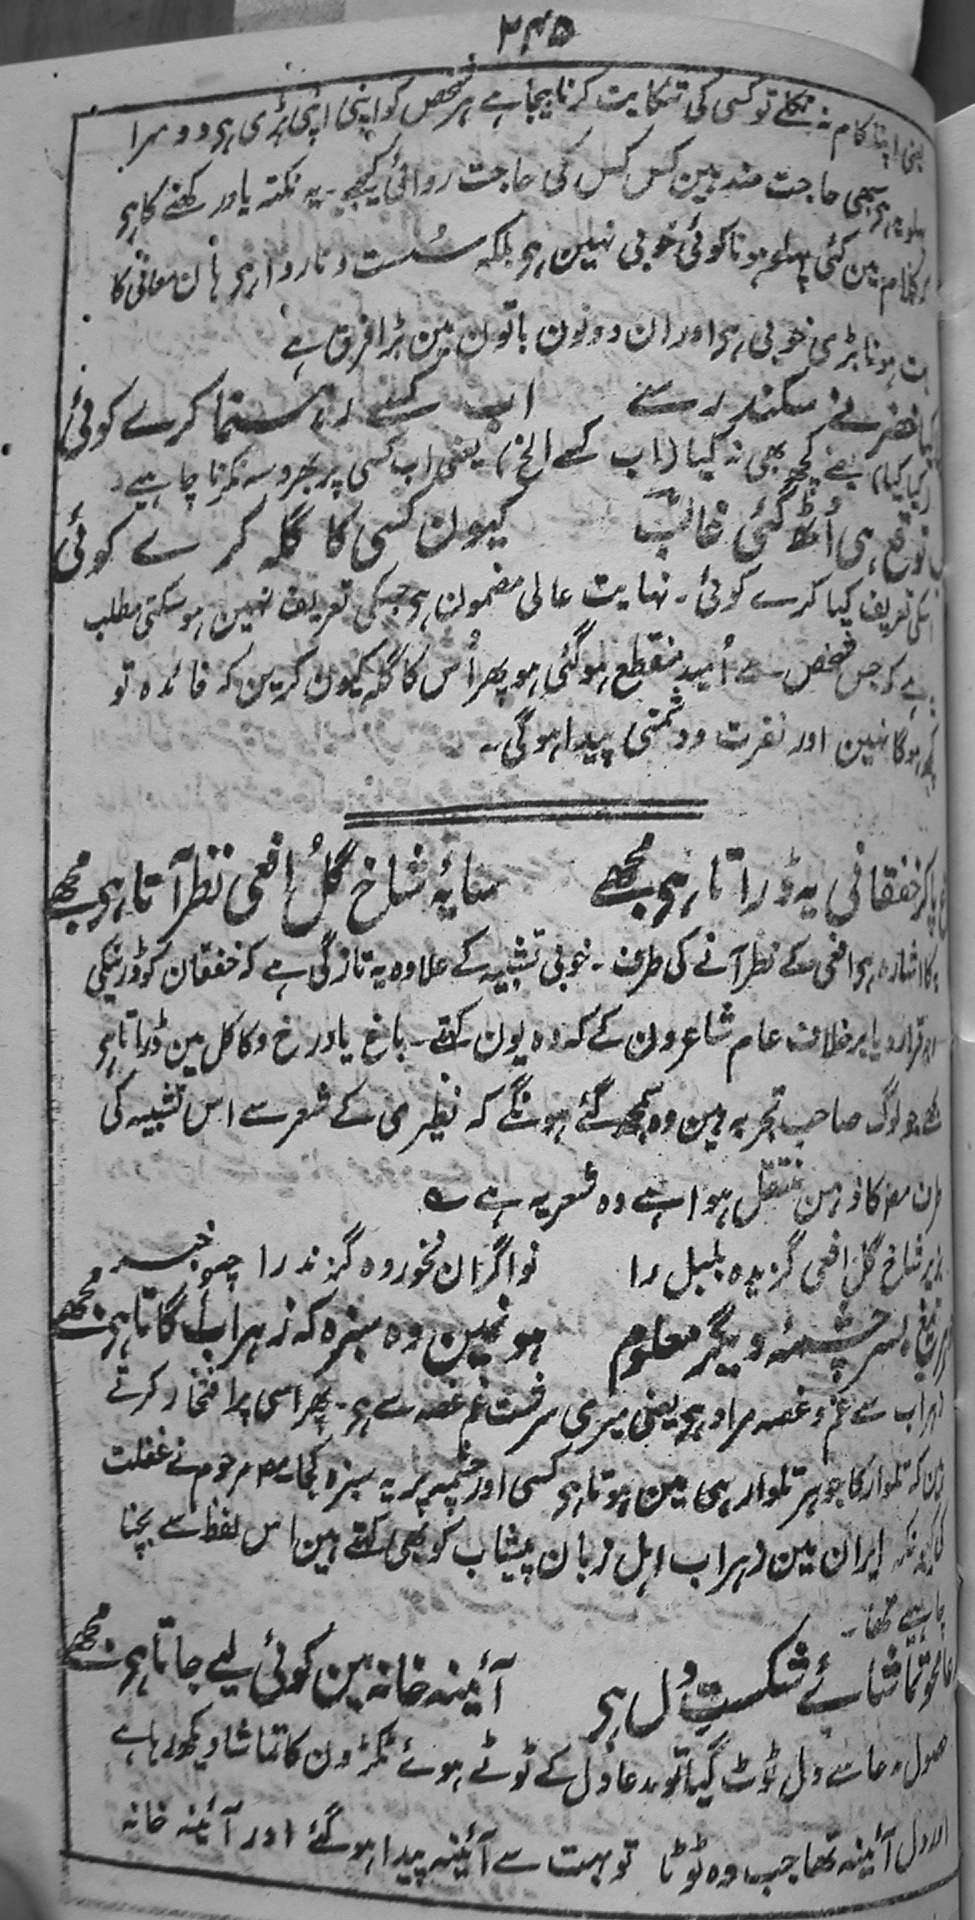 ۲۴۵
اپنا کام نہ نکلے تو کسی کی شکایت کرنا بیجا ہے ہر شخص کو اپنی اپنی پڑی ہی دوسرا
سبھی حاجت مند ہین کس کس کی حاجت روائی کیجیے۔ یہ نکتہ یاد رکھنے کا ہی
کلام مین کئی پہلو ہونا کوئی خوبی نہین ہی بلکہ سُست و ناروا ہی ہان معانی کا
ہونا بڑی خوبی ہی اور ان دونون باتون مین بڑا فرق ہے
کیا خضر نے سکندر سے اب کسے رہنما کرے کوئی
(کیا کیا) یعنے کچھ بھی نہ کیا (اب کسے الخ) یعنی اب کسی پر بھروسہ نکرنا چاہیے۔
توقع ہی اُٹھ گئی غالبؔ کیون کسی کا گلہ کرے کوئی
اسکی تعریف کیا کرے کوئی۔ نہایت عالی مضمون ہی جسکی تعریف نہین ہو سکتی مطلب
ہے کہ جس شخص سے اُمید منقطع ہو گئی ہو پھر اُس کا گلہ کیون کرین کہ فائدہ تو
کچھ ہوگا نہین اور نفرت و دشمنی پیدا ہوگی۔
باغ پا کر خفقانی یہ ڈراتا ہی مجھے سایۂ شاخِ گُل افعی نظر آتا ہی مجھے
یہ کا اشارہ ہی افعی کے نظر آنے کی طرف۔ خوبی تشبیہ کے علاوہ یہ تازگی ہے کہ خفقان کو ڈرنیکی
قرار دیا برخلاف عام شاعرون کے کہ وہ یون کہتے۔ باغ یاد رخ و کاکل مین ڈراتا ہی
مجھے جو لوگ صاحب تجربہ ہین وہ سمجھ گئے ہونگے کہ نظیری کے شعر سے اس تشبیہ کی
طرف مصؔ کا ذہن منتقل ہوا ہے وہ شعر یہ ہے ؎
بزیر شاخ گل افعی گزیدہ بلبل را نواگران نخوردہ گزند را چہ خبر
جوہر تیغ بسر چشمۂ دیگر معلوم ہون مین وہ سبزہ کہ زہراب اُگاتا ہی مجھے
زہراب سے غم و غصہ مراد ہی یعنی میری سرشت غم غصہ سے ہی۔ پھر اسی پر افتخار کرتے
ہین کہ تلوار کا جوہر تلوار ہی مین ہوتا ہی کسی اور چشمہ پر یہ سبزہ کجا مصؔ مرحوم نے غفلت
کی کیونکہ ایران مین زہراب اہل زبان پیشاب کو بھی کہتے ہین اس لفظ سے بچنا
چاہیے تھا۔
مدعا محو تماشائے شکستِ دل ہی آئینہ خانہ مین کوئی لیے جاتا ہی مجھے
حصول مدعا سے دل ٹوٹ گیا تو مدعا دل کے ٹوٹے ہوئے ٹکڑون کا تماشا دیکھ رہا ہے
اور دل آئینہ تھا جب وہ ٹوٹا تو بہت سے آئینہ پیدا ہو گئے اور آئینہ خانہ